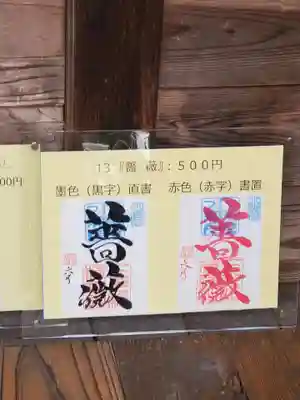 13『薔薇』:500円
墨色(黒字)直書 赤色(赤字)書置
薔薇
薔薇
00円